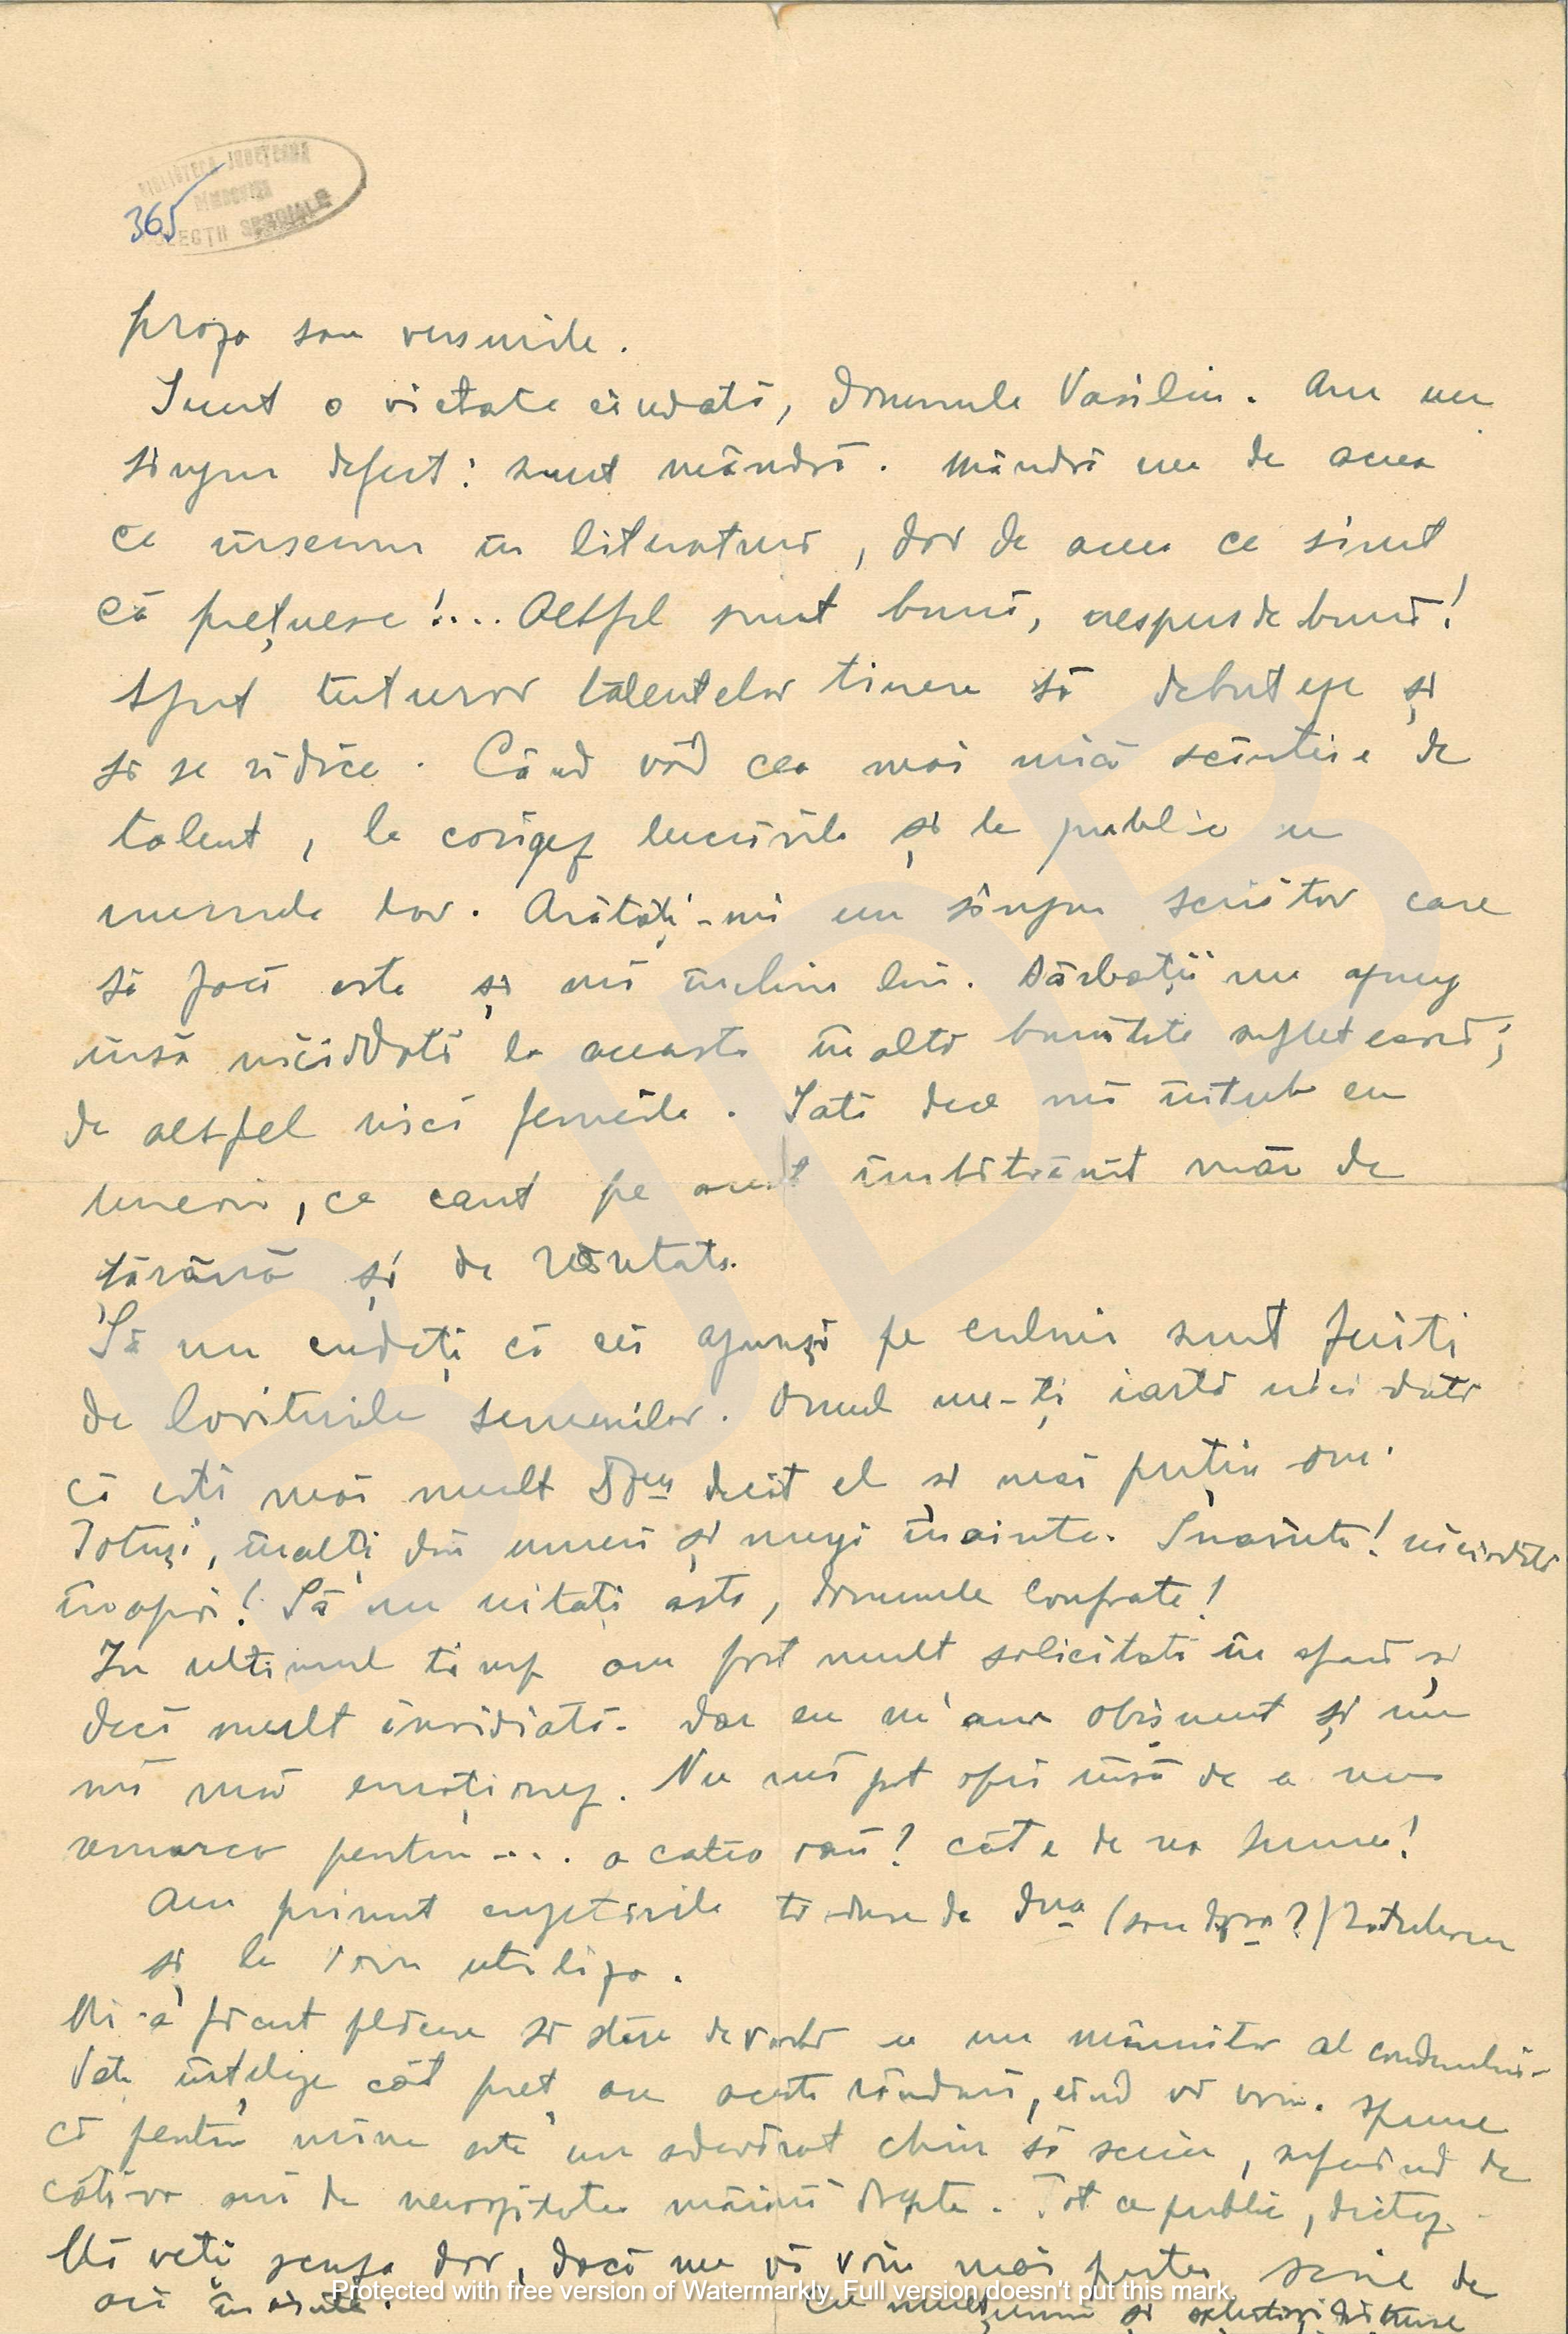 BIBLIOTECA JUDEȚEANĂ
DÎMBOVIȚA
COLECȚII SPECIALE
365
proza sau versurile.
Sunt o vietate ciudată, domnule Vasiliu. Am un
singur defect: sunt mândră. Mândră nu de aceea
ce însemn în literatură, dar de aceea ce simt
că prețuesc!... Altfel sunt bună, nespus de bună!
Ajut tuturor talentelor tinere să debuteze și
să se ridice. Când văd cea mai mică scânteie de
talent, le corigez lucrările și le public cu
numele lor. Arătați-mi un singur scriitor care
să facă asta și mă închin lui. Bărbații nu ajung
însă niciodată la această înaltă bunătate sufletească;
de altfel nici femeile. Iată dece mă întreb eu
uneori, ce caut pe acest îmbătrânit măr de
țărână și de răutate.
Să nu credeți că cei ajunși pe culmi sunt feriți
de loviturile semenilor. Omul nu-ți iartă niciodată
că ești mai mult Dzeu decât el și mai puțin om.
Totuși, înalți din umeri și mergi înainte. Înainte! niciodată
înapoi! Să nu uitați asta, domnule Confrate!
In ultimul timp am fost mult solicitată în afară și
deci mult invidiată. Dar eu m'am obișnuit și nu
mă mai emoționez. Nu mă pot opri însă de a nu
remarca pentru.... a câtea oară? cât e de rea lumea!
Am primit cugetările traduse de dna (sau dșra?) Rădulescu
și le voiu utiliza.
Mi-a făcut plăcere să stau de vorbă cu un mânuitor al condeiului.
Veți înțelege cât preț au aceste rânduri, când vă voiu spune
că pentru mine este un adevărat chin să scriu, suferind de
câțiva ani de nevrozitatea mâinii drepte. Tot ce public, dictez.
Mă veți scuza dar, dacă nu vă voiu mai putea scrie de
aci înainte.
Cu mulțumiri și salutări distinse
Protected with free version of Watermarkly. Full version doesn't put this mark.
BJDB